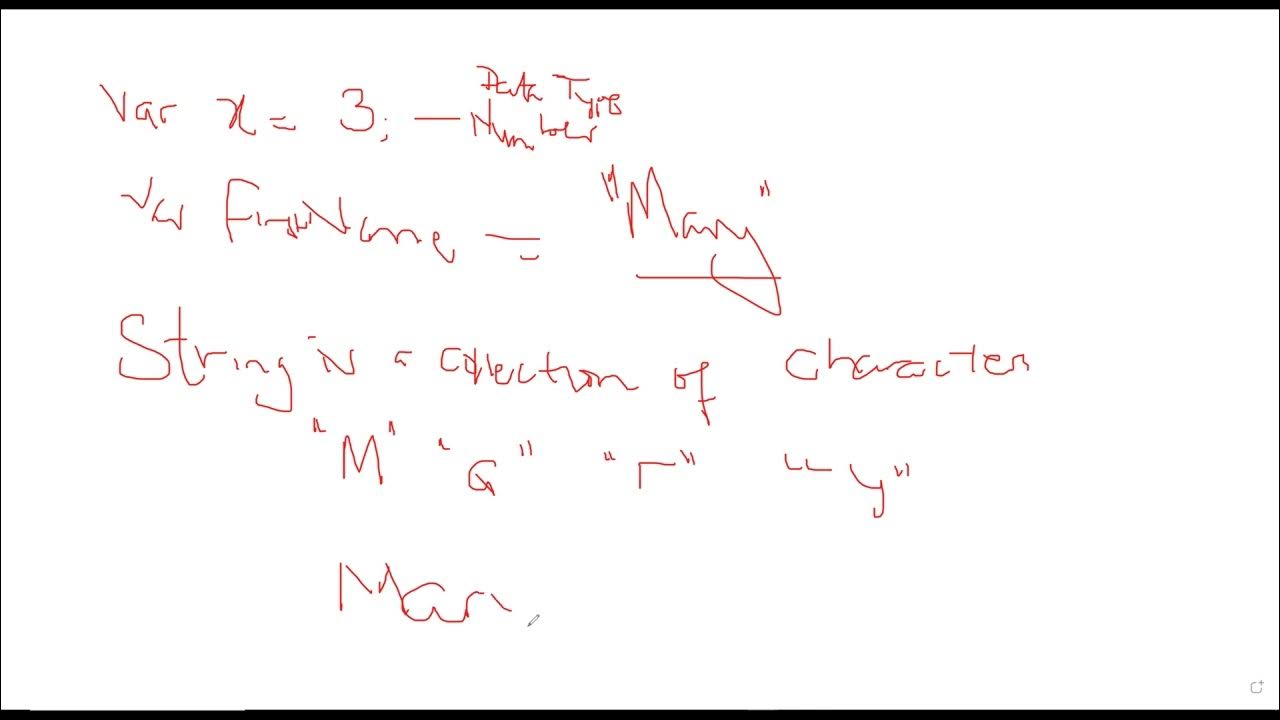 Var x = 3; — Data Type
Number
Var FirstName = "Mary"
String is a collection of character
"M" "a" "r" "y"
Mar